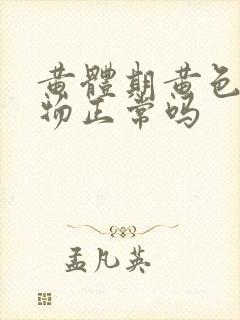 黄體期黄色
物正常吗
孟凡英